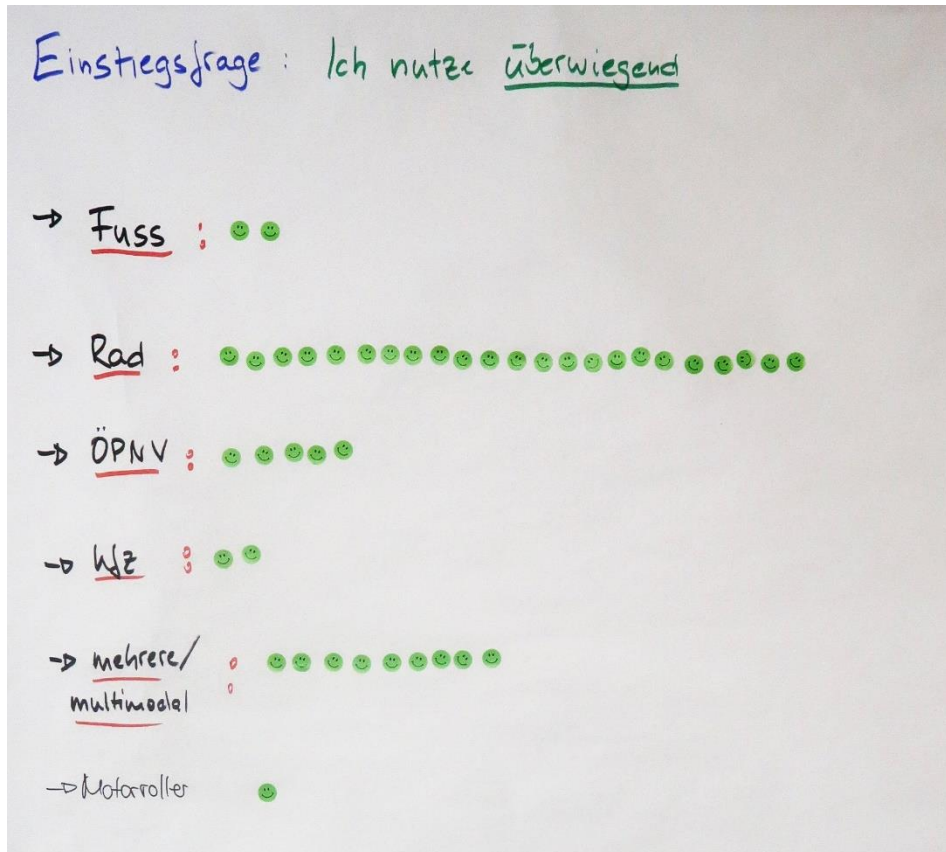 Einstiegsfrage: Ich nutze überwiegend
→ Fuss :
→ Rad :
→ ÖPNV :
→ Kfz :
→ mehrere/ :
multimodal
→ Motorroller